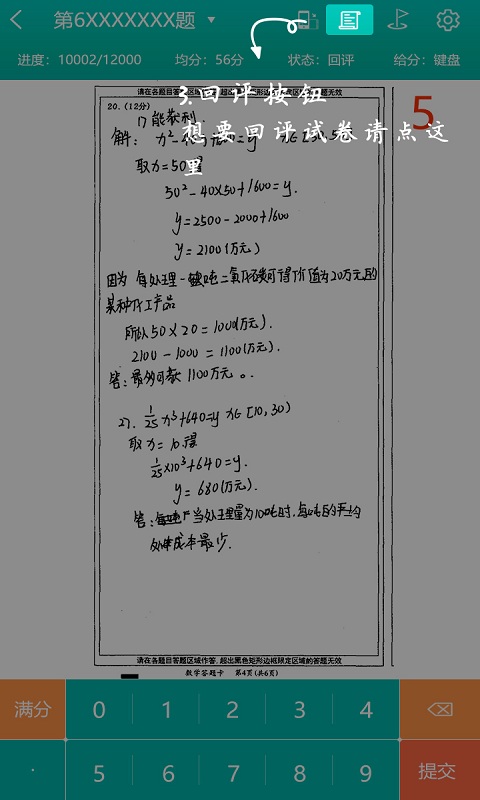 第6XXXXXXX题
进度：10002/12000 均分：56分 状态：回评 给分：键盘
请在各题目答题区域作答，超出黑色矩形边框限定区域的答题无效
3.回评按钮
想要回评试卷请点这里
5
20.（12分）
1) 能获利
解：
取x=50得
50²-40×50+1600=y.
y=2500-2000+1600
y=2100(万元)
因为 每处理一吨二氧化碳可得价值为20万元的
某种化工产品
所以50×20=1000(万元).
2100-1000=1100(万元).
答：最多可获1100万元。
2). 1/25 x³+640=y x∈[10,30)
取x=10.得
1/25×10³+640=y.
y=680(万元).
答：当处理量为10吨时,每吨的平均
处理成本最少.
请在各题目答题区域作答，超出黑色矩形边框限定区域的答题无效
数学答题卡 第4页(共6页)
满分 0 1 2 3 4
. 5 6 7 8 9 提交